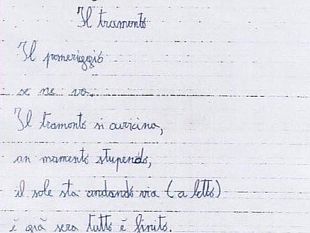 Il tramonto
Il pomeriggio
se ne va.
Il tramonto si avvicina,
un momento stupendo,
il sole sta andando via (a letto)
è già sera tutto è finito.